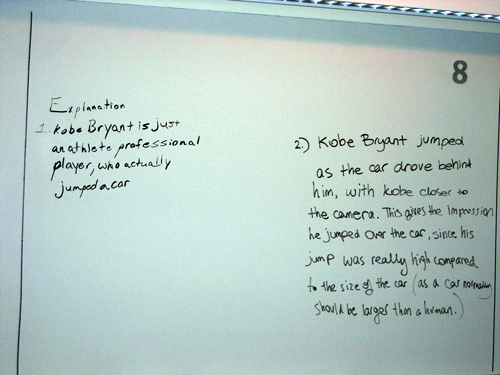 8
Explanation
1. Kobe Bryant is just
an athlete professional
player, who actually
jumped a car
2.) Kobe Bryant jumped
as the car drove behind
him, with Kobe closer to
the camera. This gives the Impression
he jumped over the car, since his
jump was really high compared
to the size of the car (as a car normally
should be larger than a human.)